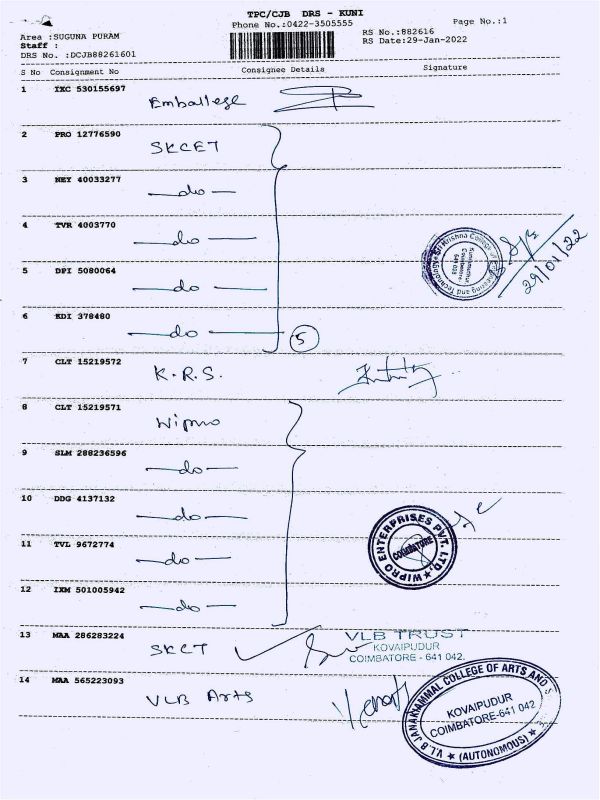 TPC/CJB DRS - KUNI
Phone No.:0422-3505555 Page No.:1
Area :SUGUNA PURAM RS No.:882616
Staff : RS Date:29-Jan-2022
DRS No. :DCJB88261601
S No Consignment No Consignee Details Signature
1 IXC 530155697
Emballege
2 PRO 12776590
SKCET
3 NEY 40033277
—do—
4 TVR 4003770
—do—
5 DPI 5080064
—do—
6 KDI 378480
—do— 5
7 CLT 15219572
K.R.S.
8 CLT 15219571
Wipro
9 SLM 288236596
—do—
10 DDG 4137132
—do—
11 TVL 9672774
—do—
12 IXM 501005942
—do—
13 MAA 286283224
SKCT
14 MAA 565223093
VLB Arts
Sri Krishna College of Engineering and Technology
Kuniamuthur
Coimbatore
641 008
29/01/22
WIPRO ENTERPRISES PVT. LTD.
COIMBATORE
VLB TRUST
KOVAIPUDUR
COIMBATORE - 641 042.
V.L.B JANAKIAMMAL COLLEGE OF ARTS AND S
KOVAIPUDUR
COIMBATORE-641 042
(AUTONOMOUS)